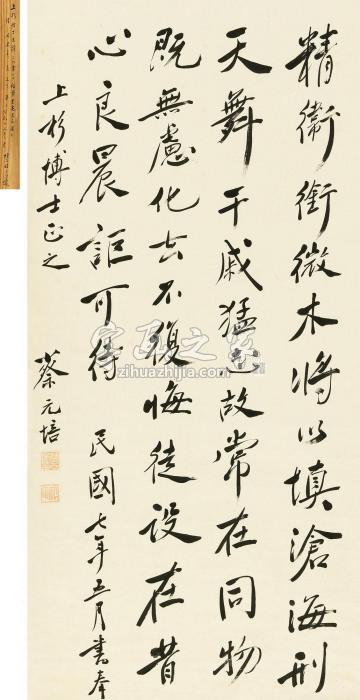 精衛銜微木將以填滄海刑
天舞干戚猛志故常在同物
既無慮化去不復悔徒設在昔
心良晨詎可待 民國七年五月書奉
上杉博士正之 蔡元培
字画之家
www.zihuazhijia.com